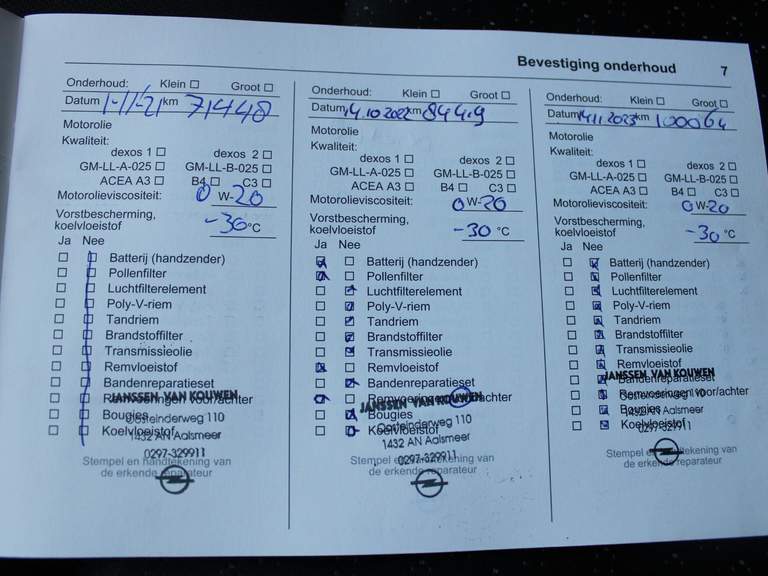 Bevestiging onderhoud 7
Onderhoud: Klein Groot
Datum 1-11-21 km 71448
Motorolie
Kwaliteit:
dexos 1 dexos 2
GM-LL-A-025 GM-LL-B-025
ACEA A3 B4 C3
Motorolieviscositeit: 0 W-20
Vorstbescherming,
koelvloeistof -30 °C
Ja Nee
Batterij (handzender)
Pollenfilter
Luchtfilterelement
Poly-V-riem
Tandriem
Brandstoffilter
Transmissieolie
Remvloeistof
Bandenreparatieset
Remvoeringen voor/achter
JANSSEN VAN KOUWEN
Bougies
Oosteinderweg 110
Koelvloeistof
1432 AN Aalsmeer
0297-329911
Stempel en handtekening van
de erkende reparateur
Onderhoud: Klein Groot
Datum 14.10.2022 km 84419
Motorolie
Kwaliteit:
dexos 1 dexos 2
GM-LL-A-025 GM-LL-B-025
ACEA A3 B4 C3
Motorolieviscositeit: 0 W-20
Vorstbescherming,
koelvloeistof -30 °C
Ja Nee
Batterij (handzender)
Pollenfilter
Luchtfilterelement
Poly-V-riem
Tandriem
Brandstoffilter
Transmissieolie
Remvloeistof
Bandenreparatieset
Remvoeringen voor/achter
JANSSEN VAN KOUWEN
Bougies
Oosteinderweg 110
Koelvloeistof
1432 AN Aalsmeer
0297-329911
Stempel en handtekening van
de erkende reparateur
Onderhoud: Klein Groot
Datum 14.11.2023 km 100064
Motorolie
Kwaliteit:
dexos 1 dexos 2
GM-LL-A-025 GM-LL-B-025
ACEA A3 B4 C3
Motorolieviscositeit: 0 W-20
Vorstbescherming,
koelvloeistof -30 °C
Ja Nee
Batterij (handzender)
Pollenfilter
Luchtfilterelement
Poly-V-riem
Tandriem
Brandstoffilter
Transmissieolie
Remvloeistof
JANSSEN VAN KOUWEN
Bandenreparatieset
Remvoeringen voor/achter
Oosteinderweg 110
Bougies
1432 AN Aalsmeer
Koelvloeistof
0297-329911
Stempel en handtekening van
de erkende reparateur